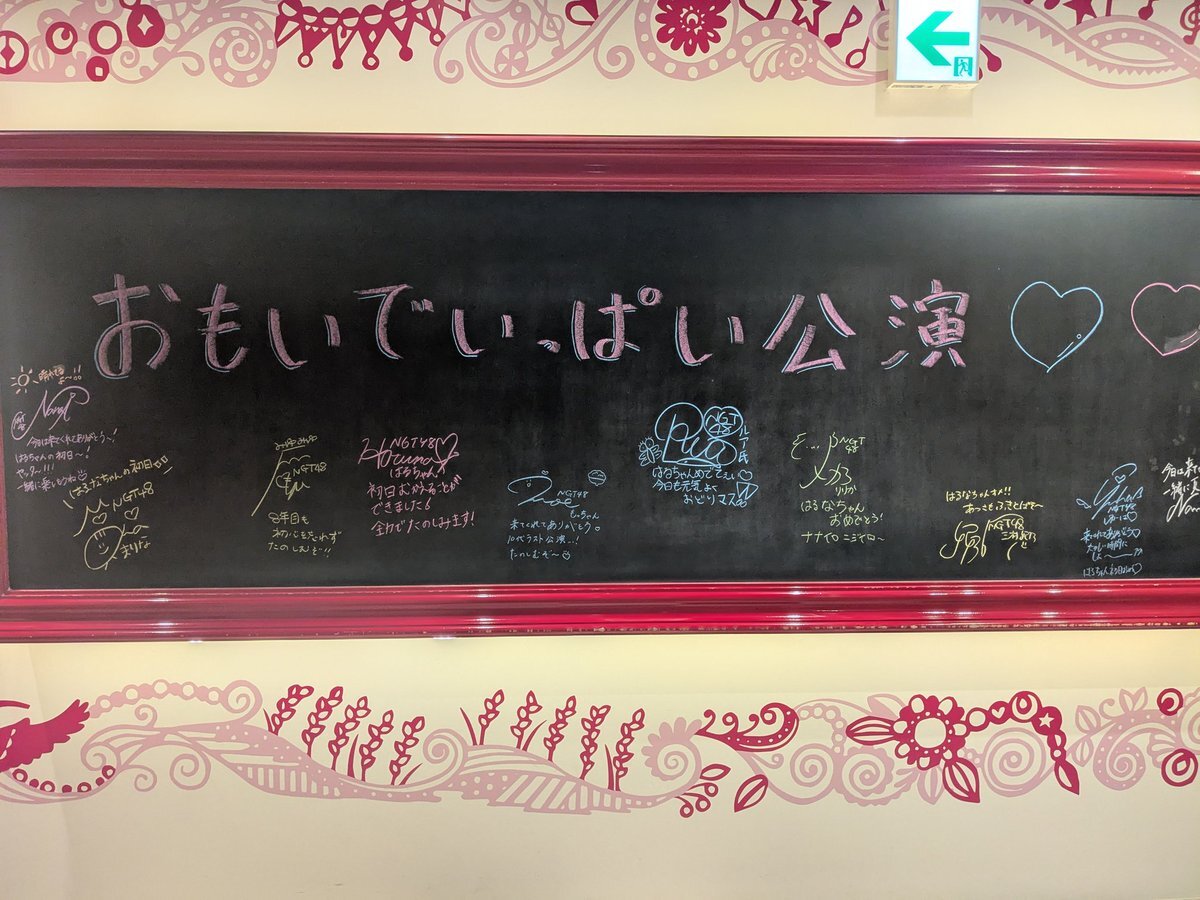 おもいでいっぱい公演
晴れてるよ〜!!
今日は来てくれてありがとう〜!
はるちゃんの初日〜!
ヤッター!!!
一緒に楽しもうね
はるなちゃんの初日
NGT48
まりな
NGT48
8年目も
初心を忘れず
たのしむぞ!!
NGT48
はるちゃん!
初日むかえることが
できました!
全力でたのしみます!
NGT48
もっちゃん
来てくれてありがとう
10代ラスト公演..!
たのしむぞ〜
NGT48
はなちゃんめでてぇぃ
今日も元気よく
おどりマス
NGT48
りりか
はるなちゃん
おめでとう!
ナナイロ ニジイロ〜
はるなちゃんオメ!!
あつさもふきとばせ〜
NGT48
NGT48
来てくれてありがとう
今日は来
一緒に楽